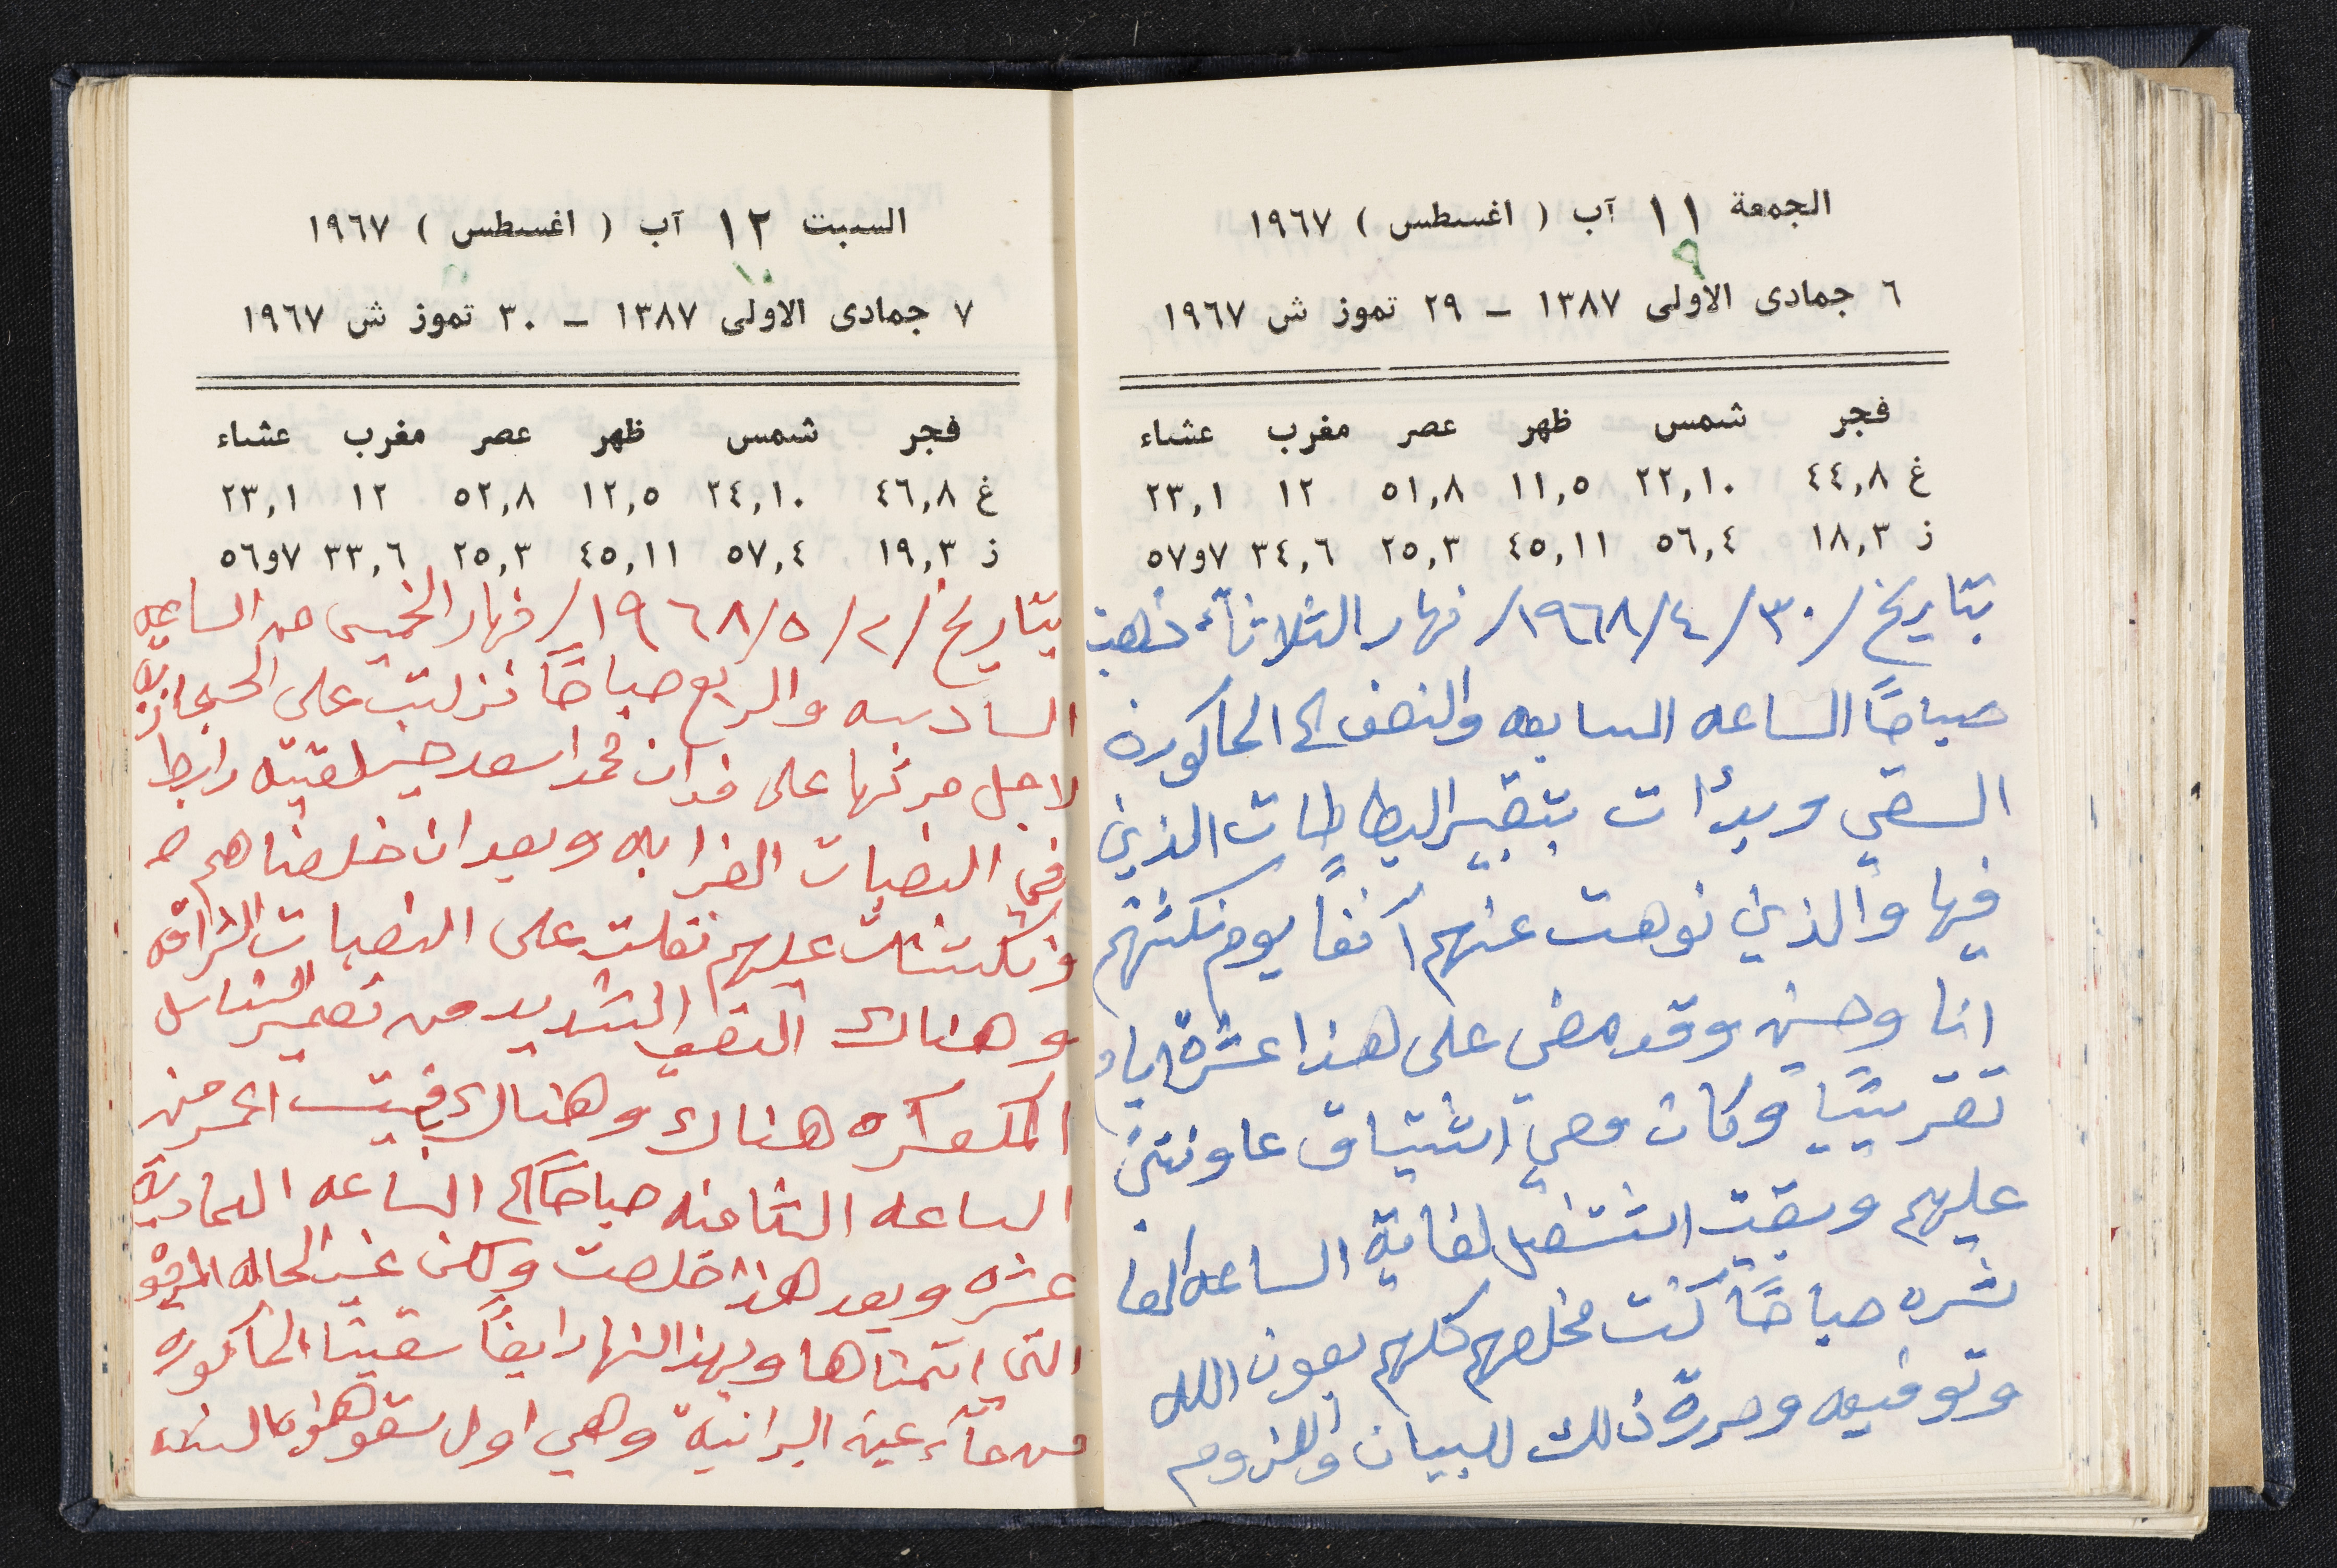 الجمعة ١١ آب ( اغسطس ) ١٩٦٧
٩
٦ جمادى الاولى ١٣٨٧ - ٢٩ تموز ش ١٩٦٧
فجر شمس ظهر عصر مغرب عشاء
غ ٤٤,٨ ٢٢,١٠ ١١,٥ ٥١,٨ ١٢ ٢٣,١
ز ١٨,٣ ٥٦,٤ ٤٥,١١ ٢٥,٣ ٣٤,٦ ٥٧و٧
بتاريخ /٣٠/٤/١٩٦٨/ نهار الثلاثاء ذهبت
صباحًا الساعه السابعه والنصف الى الحاكورة
السقي وبدأت بتقبير البطاطات الذين
فيها والذين نوهت عنهم آنفًا يوم نكشتهم
انا وحسين وقد مضى على هذا عشرة ايام
تقريبًا وكان معي اشتياق عاونتني
عليهم وبقيت اشتغل لغاية الساعه العا
شره صباحًا كنت مخلصهم كلهم بعون الله
وتوفيقه وحررة ذلك للبيان واللزوم
السبت ١٢ آب ( اغسطس ) ١٩٦٧
١٠
٧ جمادى الاولى ١٣٨٧ - ٣٠ تموز ش ١٩٦٧
فجر شمس ظهر عصر مغرب عشاء
غ ٤٦,٨ ٢٤,١٠ ١٢,٥ ٥٢,٨ ١٢ ٢٣,١
ز ١٩,٣ ٥٧,٤ ٤٥,١١ ٢٥,٣ ٣٣,٦ ٥٦و٧
بتاريخ /٢/٥/١٩٦٨/ نهار الخميس من الساعه
السادسه والربع صباحًا نزلت على الحجازية
لاجل حرثها على فدان محمد اسعد حيث لقيته رابط
في النصبات الغرابه وبعد ان خلصناهم
ونكشات عليهم نقلت على النصبات الشراقه
وهناك التعب الشديد من تعمير الشناسل
المكعكره هناك وهناك بقيت اعمر من
الساعه الثامنه صباحًا الى الساعه الحادية
عشره وبعد هذا خلصت ولكن غب الحاله
التي اتمناها وبهذا النهار ايضًا سقينا الحاكوره
من مآء عين البرانية وهي اول سقوه هذه السنه